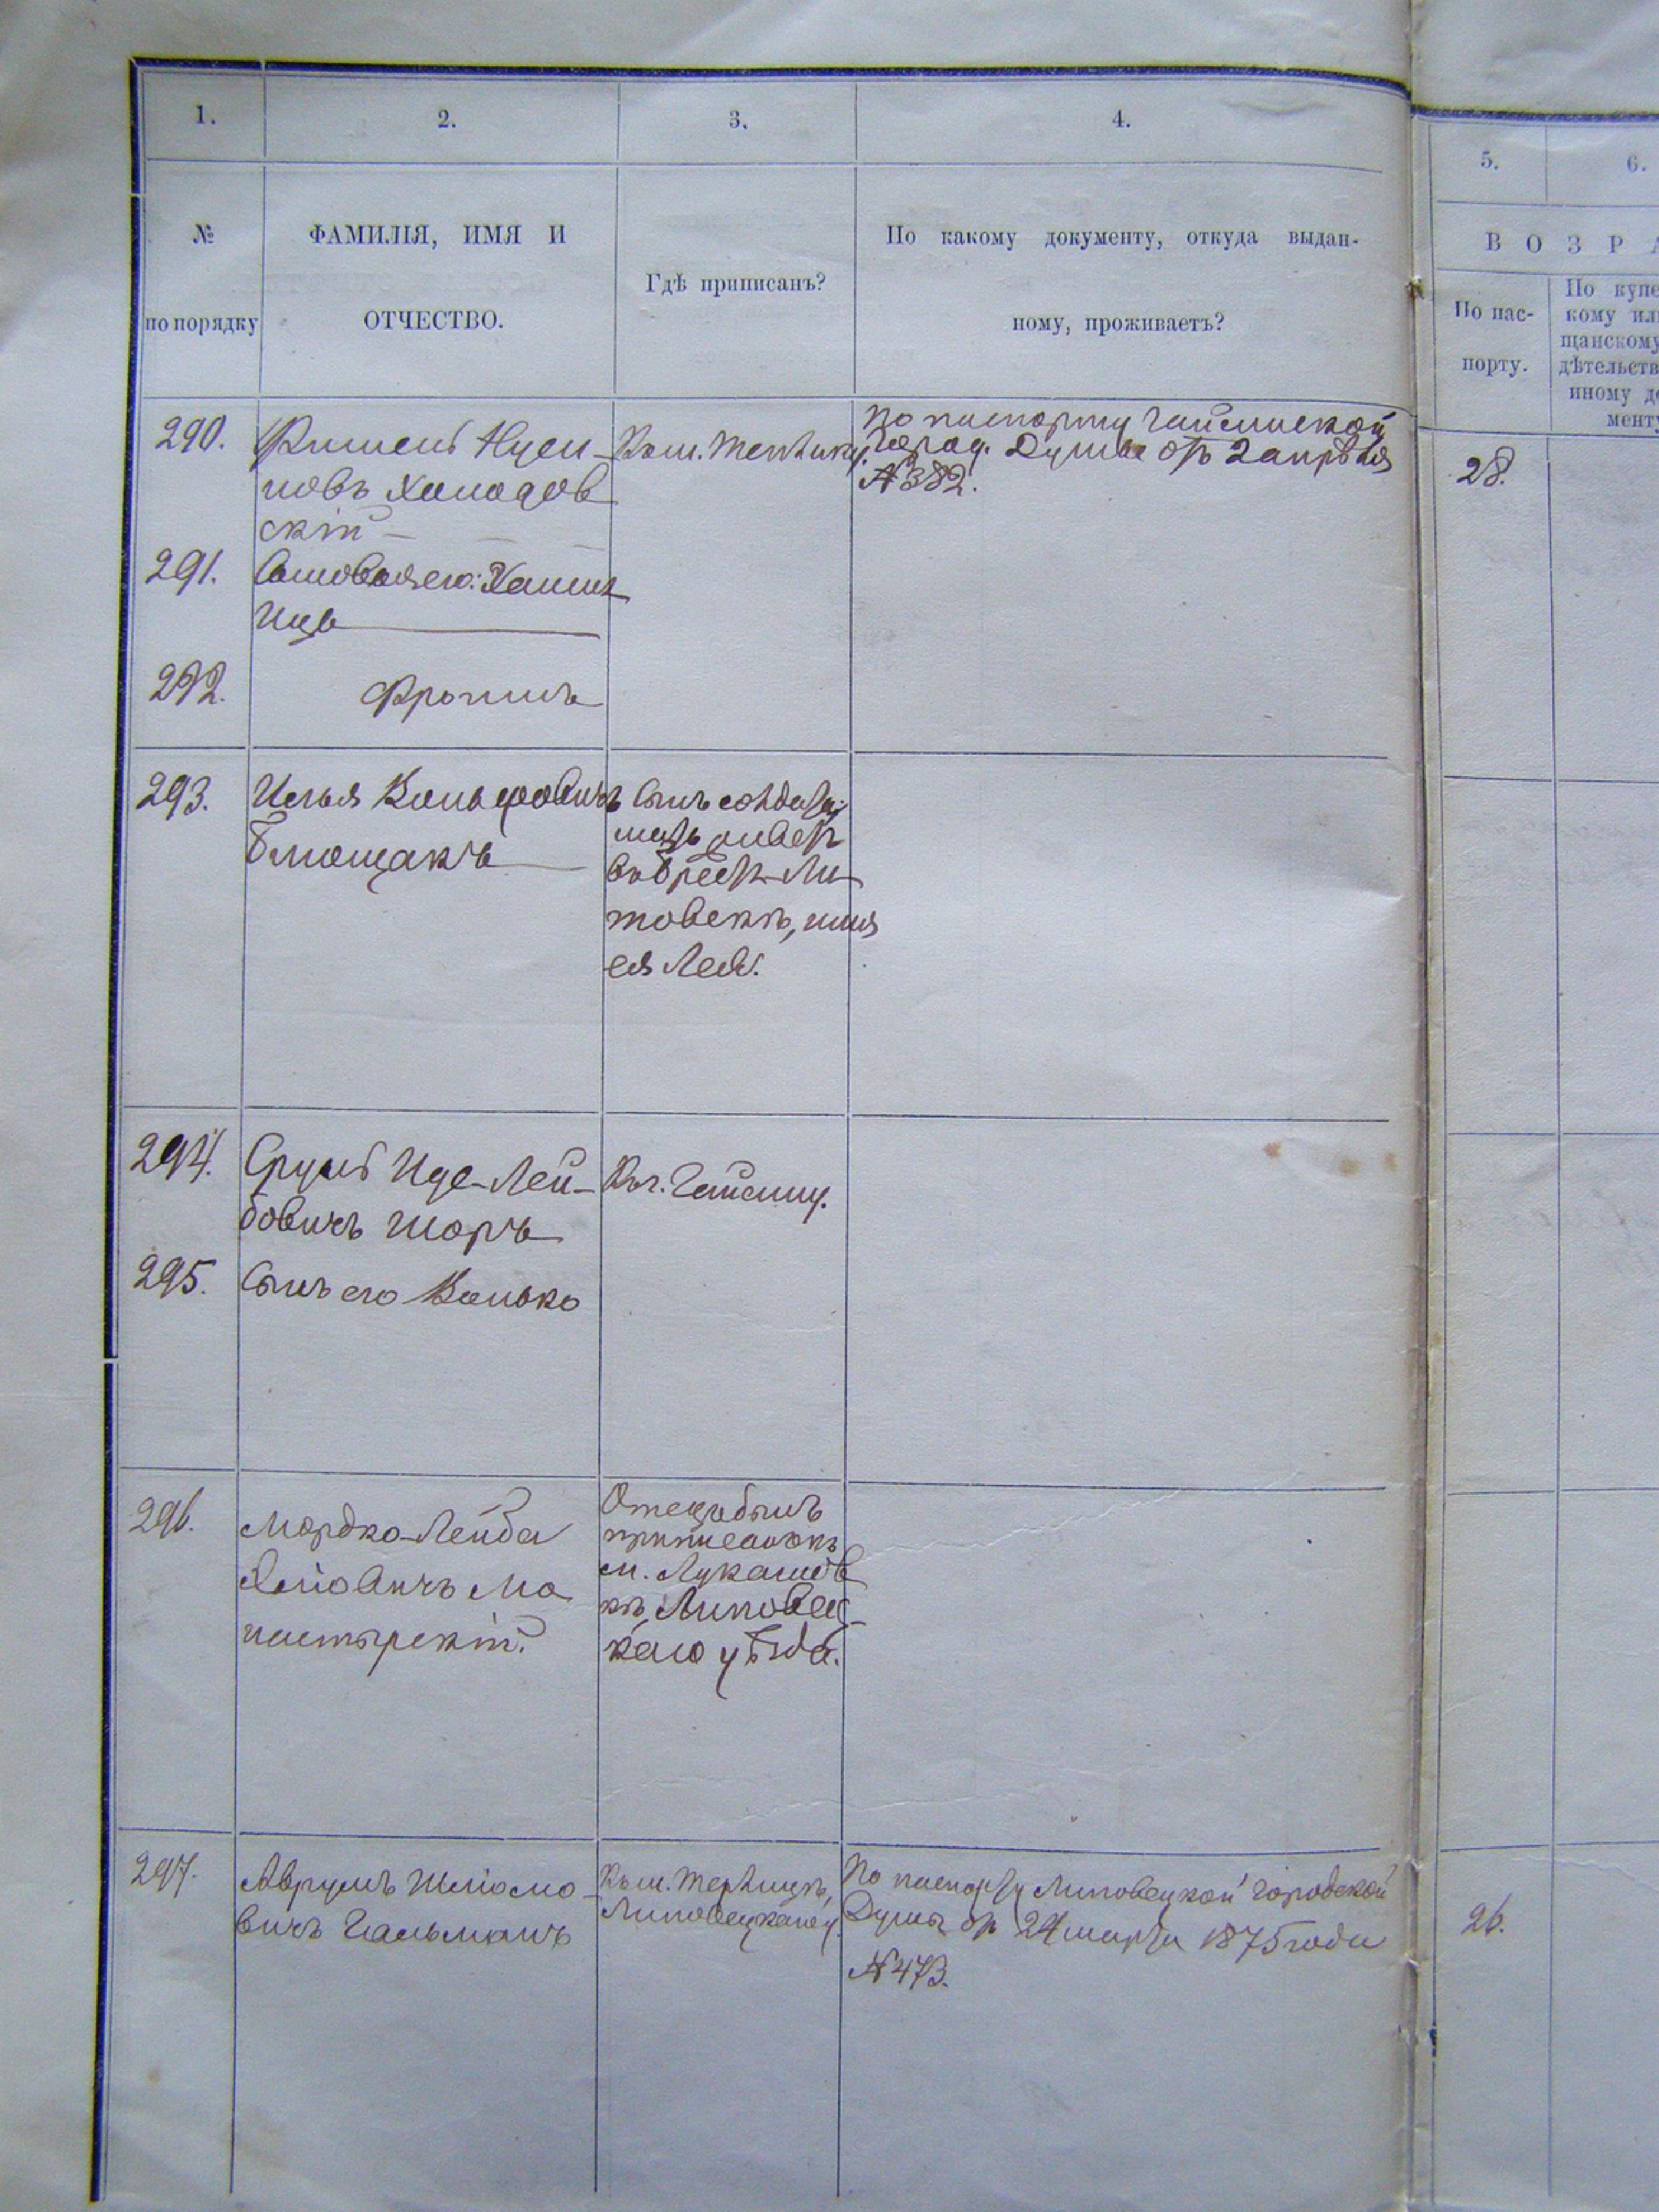 1.
2.
3.
4.
5.
6.
№
по порядку
ФАМИЛІЯ, ИМЯ И
ОТЧЕСТВО.
Гдѣ приписанъ?
По какому документу, откуда выдан-
ному, проживаетъ?
В О З Р А
По пас-
порту.
По купе
кому ил
щанскому
дѣтельств
иному до
менту
290.
Фишель Нуси-
новъ Холодов
скій
Къ м. Теплику
По паспорту Гайсинской
Город. Думы отъ 2 апрѣля
№ 382.
28.
291.
Сыновья его: Хаим
Ицъ
292.
Фроимъ
293.
Илья Вольфовичъ
Блющакъ
Сынъ солдата,
мать живет
въ Брест-Ли
товскѣ, имя
ея Лея.
294.
Срулъ Иде-Лей-
бовичъ Шоръ
Къ г. Гайсину.
295.
Сынъ его Волько
296.
Мордко-Лейба
Мо
настырскій.
Отецъ былъ
приписанъ къ
м. Лукашов
кѣ, Липовец-
каго уѣзда.
297.
Аврумъ Шліомо-
вичъ Гальманъ
Къ м. Терлицѣ,
Липовецкаго у.
По паспорту Липовецкой Городской
Думы отъ 24 марта 1875 года
№ 473.
26.